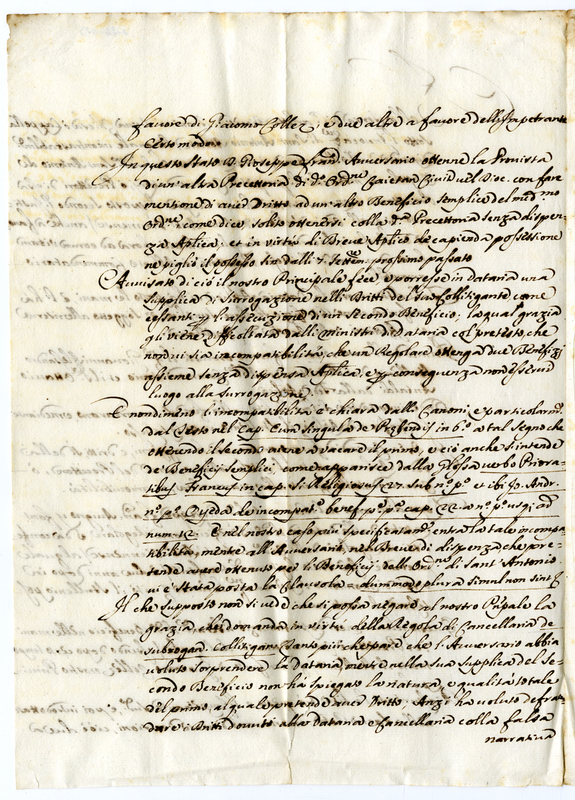 favore di Giacomo Collez, e due altre a favore dell'Impetrante
certo modo
In questo stato D. Giuseppe Fran. Avversario ottenne la Provista
di un'altra Precettoria di d.o Ord.ne Caietan Civid vel Dioc. con fare
mentione di aver Dritto ad un'altro Beneficio semplice del med.mo
Ord.ne, come dice, solito ottenersi colla d.a Precettoria senza dispen-
za Aplica, et in virtù di Breve Aplico de capienda possessione
ne pigliò il possesso sin dalli 7. Settem. prossimo passato
Avvisato di ciò il nostro Principale fece e porresse in dataria una
supplica di surrogazione nelli Dritti del suo Collitigante come
cessanti p l'assecuzione di un secondo Beneficio; la qual grazia
gli viene difficoltata dalli Ministri di Dataria col pretesto, che
non vi sia incompatibilità, che un Regolare ottenga due Benefizj
assieme senza dispensa Aplica, e p conseguenza non esservi
luogo alla surrogazione.
E nondimeno l'incompatibilità è chiara dalli Canoni e particolarm.
dal Sesto nel cap. Cum singula de Prebendis in 6.o a tal segno che
ottenendo il secondo viene a vacare il primo, e ciò anche s'intende
de Beneficij semplici, come apparisce dalla Glossa verbo Priora-
tibus, Francus in cap. si Religiosus 27. sub n.o p.o e ibi Jo. Andr.
n.o p.o Ojeda de incompat. benef. p. p.a cap. 22. a n.o p.o usq. ad
num. 12. E nel nostro caso più specificatam. entra la tale incompa-
tibilità, mentre all'Avversario nel Breve di dispenza, che pre-
tende avere ottenuto per li Beneficij dell'Ord.ne di Sant'Antonio
vi è stata posta la Clausola dummodo plura simul non sint
Il che supposto non si vede che si possa negare al nostro Pnpale la
grazia, che domanda in virtù della Regola di Cancellaria de
subrogan. collitigan. tanto più che pare che l'Avversario abbia
voluto sorprendere la dataria mentre nella sua supplica del se-
condo Beneficio non ha spiegato la natura, e qualità totale
del primo, al quale pretende aver Dritto, Anzi ha voluto defrau-
dare i Dritti dovuti alla Dataria e Cancellaria colla falsa
narrativa